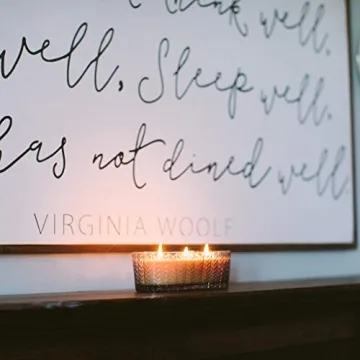 think well,
well, Sleep well,
has not dined well.
VIRGINIA WOOLF